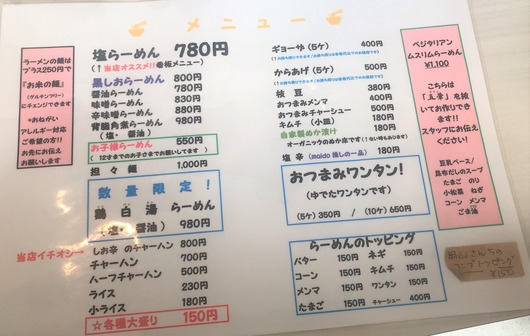 メニュー
ラーメンの麺は
プラス250円で
『お米の麺』
(グルテンフリー)
にチェンジできます
*おねがい
アレルギー対応
ご希望の方!!
お先にお伝え
お願いします
塩らーめん 780円
(↑当店オススメ!!看板メニュー)
黒しおらーめん 800円
醤油らーめん 780円
味噌らーめん 830円
辛味噌らーめん 880円
背脂魚策らーめん 980円
(塩・醤油)
お子様らーめん 550円
(12才までのお子さまでお願いしてます)
担々麺 1,000円
数量限定!
鶏白湯らーめん
(塩・醤油) 980円
当店イチオシ→
しお辛のチャーハン 800円
チャーハン 700円
ハーフチャーハン 500円
ライス 230円
小ライス 180円
☆各種大盛り 150円
ギョーザ (5ケ) 400円
からあげ (5ケ) 500円
枝豆 380円
おつまみメンマ 400円
おつまみチャーシュー 500円
キムチ (小皿) 180円
自家製ぬか漬け 180円
オーガニックのぬか床です
塩辛 (maido 推しの一品) 180円
おつまみワンタン!
(ゆでたワンタンです)
(5ケ) 350円 / (10ケ) 650円
らーめんのトッピング
バター 150円 ネギ 150円
コーン 150円 キムチ 150円
メンマ 150円 ワンタン 150円
たまご 150円 チャーシュー 400円
ベジタリアン
ムスリムらーめん
¥1,100
こちらは
「五葷」
を抜い
てお作りでき
ます!!
スタッフにお伝え
ください!
豆乳ベース/
昆布だしのスープ
たまご のり
小松菜 ねぎ
コーン メンマ
ごま油
トッピング
¥150